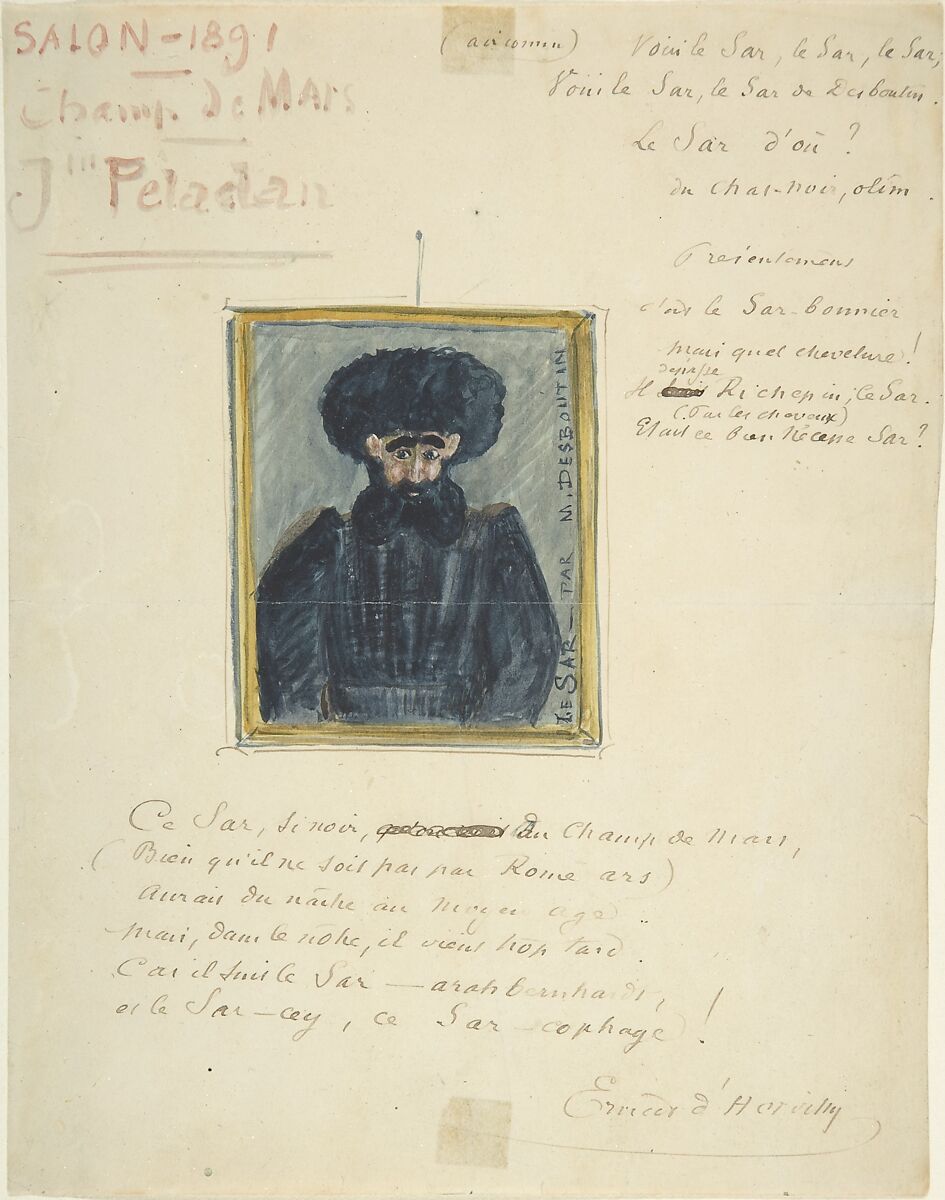 SALON - 1891
Champ de MARS
J<sup>in</sup> Peladan
(air connu)
Voici le Sar, le Sar, le Sar,
Voici le Sar, le Sar de Desboutin.
Le Sar d'où ?
du chat-noir, olim.
Présentement
c'est le Sar-bonnier
mais quel chevelure !
dépasse
Il Richepin, le Sar.
(Par les cheveux)
Etait ce bien Nécesse Sar ?
LE SAR - PAR M. DESBOUTIN
Ce Sar, si noir, du Champ de Mars,
(Bien qu'il ne soit pas par Rome ars)
Aurait du naître au moyen age ..
mais, dans le nôtre, il vient trop tard.
Car il suit le Sar - arah bernhardt,
et le Sar-cey, ce Sar - cophage !
Ernest d'Hervilly